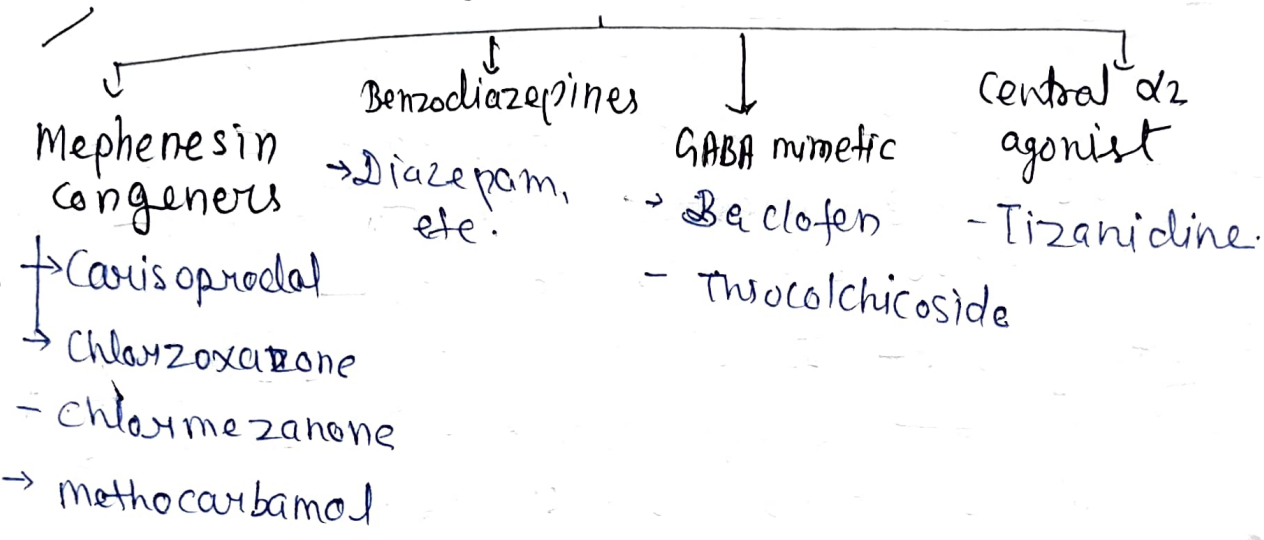 Mephenesin
congeners
→Carisoprodal
→ Chlorzoxazone
- Chlormezanone
→ methocarbamol
Benzodiazepines
→Diazepam,
etc.
GABA mimetic
→ Baclofen
- Thiocolchicoside
Central α2
agonist
- Tizanidine.